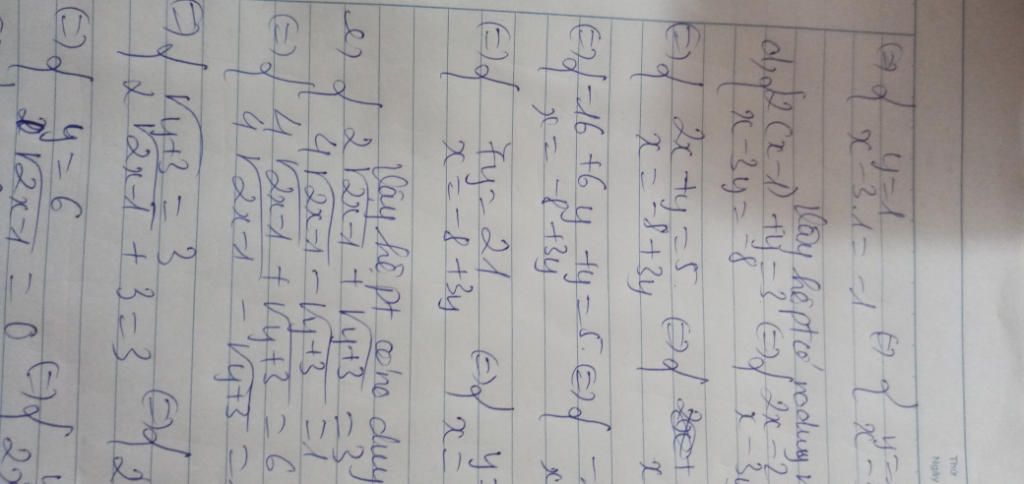 Thứ
Ngày
⇔ { y=1
x-3.1=-1 ⇔ { y=
x=
Vậy hệ pt có
d, { 2(x-1)+y=3
x-3y=-8 ⇔ { 2x-2
x-3y
⇔ { 2x+y=5
x=-8+3y ⇔ {
x
⇔ { -16+6y+y=5
x=-8+3y ⇔ { -
x
⇔ { 7y=21
x=-8+3y ⇔ { y=
x=
Vậy hệ pt có
e, { 2√2x-1+√y+3=3
4√2x-1-√y+3=1
⇔ { 4√2x-1+√y+3=6
4√2x-1-√y+3=
⇔ { √y+3=3
2√2x-1+3=3 ⇔ {
2
⇔ { y=6
2√2x-1=0 ⇔ { y
2x